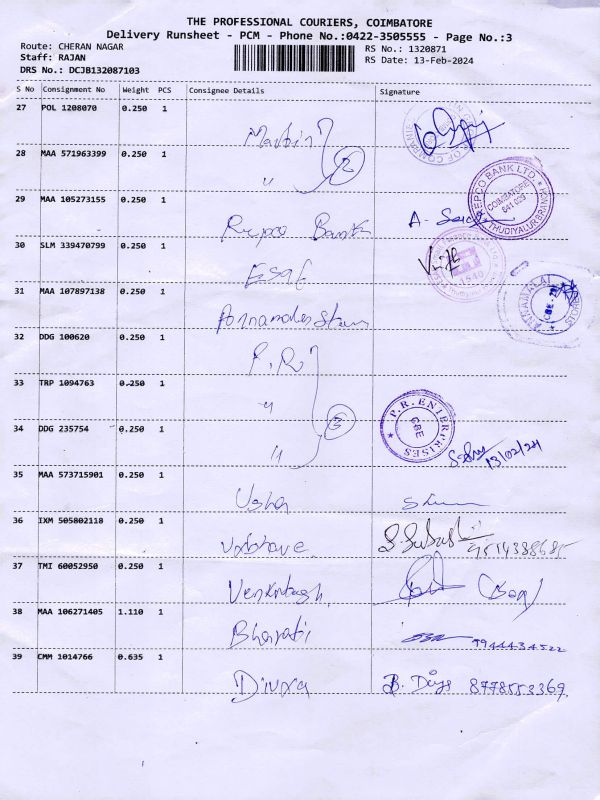 THE PROFESSIONAL COURIERS, COIMBATORE
Delivery Runsheet - PCM - Phone No.:0422-3505555 - Page No.:3
Route: CHERAN NAGAR
Staff: RAJAN
DRS No.: DCJB132087103
RS No.: 1320871
RS Date: 13-Feb-2024
S No Consignment No Weight PCS Consignee Details Signature
27 POL 1208070 0.250 1 Martin
28 MAA 571963399 0.250 1 " 2
29 MAA 105273155 0.250 1 Repco Bank A.
REPCO BANK LTD.
COIMBATORE
641 029
30 SLM 339470799 0.250 1 Esaf
31 MAA 107897138 0.250 1
ANNAMALAI STORES
CBE
32 DDG 100620 0.250 1 P.R
33 TRP 1094763 0.250 1 "
34 DDG 235754 0.250 1 " 3
P.R. ENTERPRISES
CBE
13/02/24
35 MAA 573715901 0.250 1 Usha
36 IXM 505802118 0.250 1
37 TMI 60052950 0.250 1 Venkatesh
38 MAA 106271405 1.110 1 Bharati 9944434522
39 CMM 1014766 0.635 1 Divya B. 8778553369